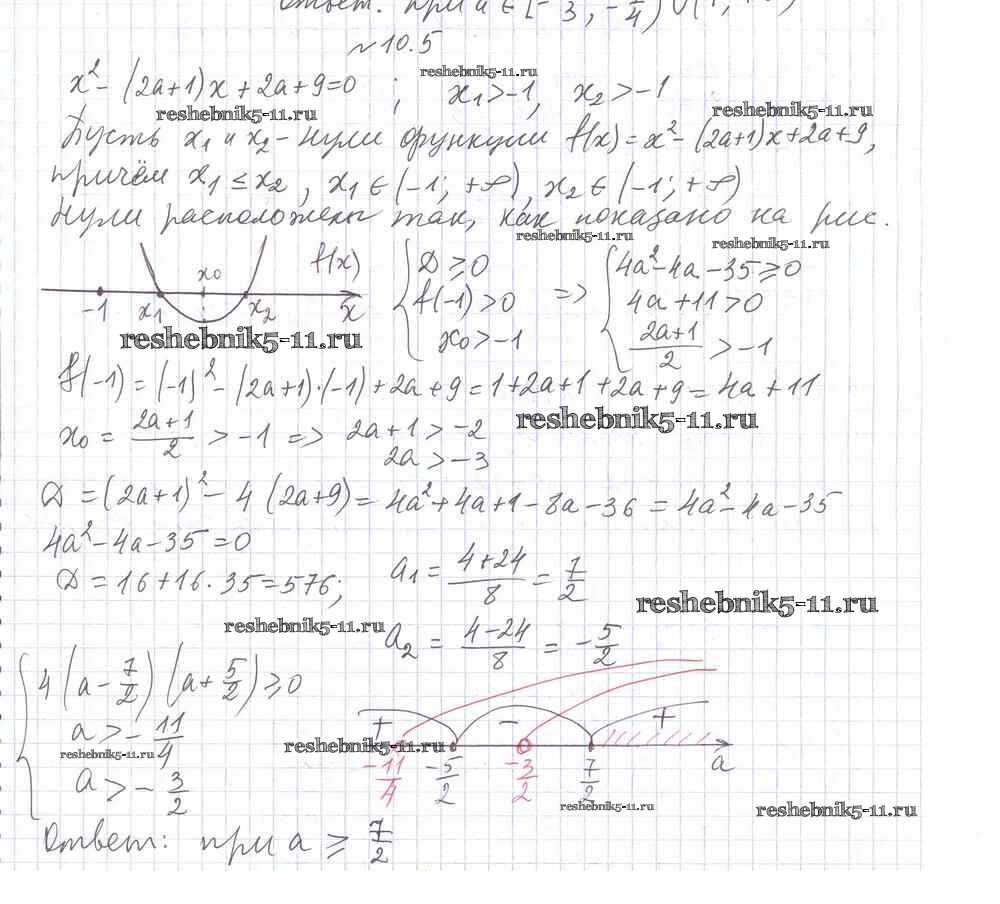 Ответ: при a ∈ [-
№10.5
x² - (2a+1)x + 2a + 9 = 0 ; x₁ > -1, x₂ > -1
reshebnik5-11.ru
reshebnik5-11.ru
reshebnik5-11.ru
Пусть x₁ и x₂ - нули функции f(x) = x² - (2a+1)x + 2a + 9,
причём x₁ ≤ x₂, x₁ ∈ (-1; +∞), x₂ ∈ (-1; +∞)
Нули расположены так, как показано на рис.
reshebnik5-11.ru
reshebnik5-11.ru
-1 x₁ x₀ x₂ f(x) x
{ D ≥ 0 => { 4a² - 4a - 35 ≥ 0
f(-1) > 0 4a + 11 > 0
x₀ > -1 (2a+1)/2 > -1
reshebnik5-11.ru
f(-1) = (-1)² - (2a+1)·(-1) + 2a + 9 = 1 + 2a + 1 + 2a + 9 = 4a + 11
reshebnik5-11.ru
x₀ = (2a+1)/2 > -1 => 2a + 1 > -2
2a > -3
D = (2a+1)² - 4(2a+9) = 4a² + 4a + 1 - 8a - 36 = 4a² - 4a - 35
4a² - 4a - 35 = 0
D = 16 + 16·35 = 576; a₁ = (4+24)/8 = 7/2
reshebnik5-11.ru
reshebnik5-11.ru
a₂ = (4-24)/8 = -5/2
{ 4(a - 7/2)(a + 5/2) ≥ 0
a > -11/4
a > -3/2
reshebnik5-11.ru
+ - +
reshebnik5-11.ru
-11/4 -5/2 -3/2 7/2 a
reshebnik5-11.ru
reshebnik5-11.ru
Ответ: при a ≥ 7/2